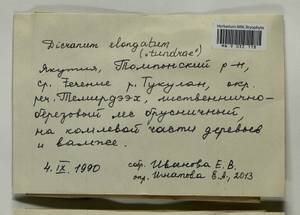 Herbarium MW, Bryophyta
Dicranum elongatum
("tundrae")
Якутия, Томпонский р-н,
ср. течение р. Тукулан, окр.
реч. Темирдээх, лиственнично-
березовый лес брусничный,
на комлевой части деревьев
и валеже.
4. IX. 1990 соб. Иванова Е. В.
опр. Игнатова Е.А., 2013